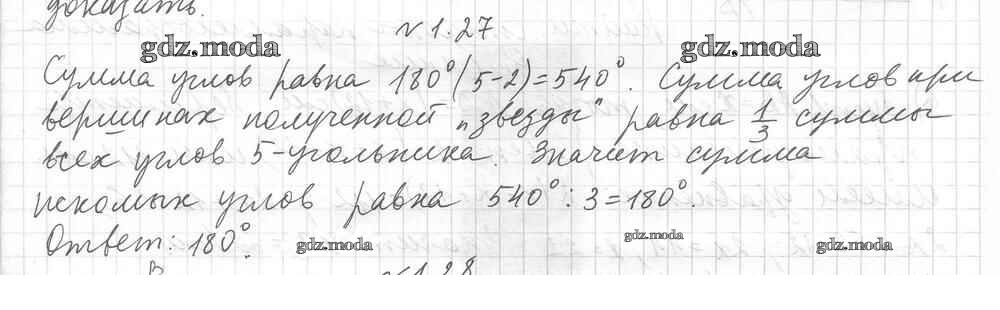 доказать.
№ 1.27.
gdz.moda gdz.moda
Сумма углов равна 180°(5-2)=540°. Сумма углов при
вершинах полученной „звезды" равна 1/3 суммы
всех углов 5-угольника. Значит сумма
искомых углов равна 540°:3=180°.
Ответ: 180°.
gdz.moda gdz.moda gdz.moda
№ 1.28